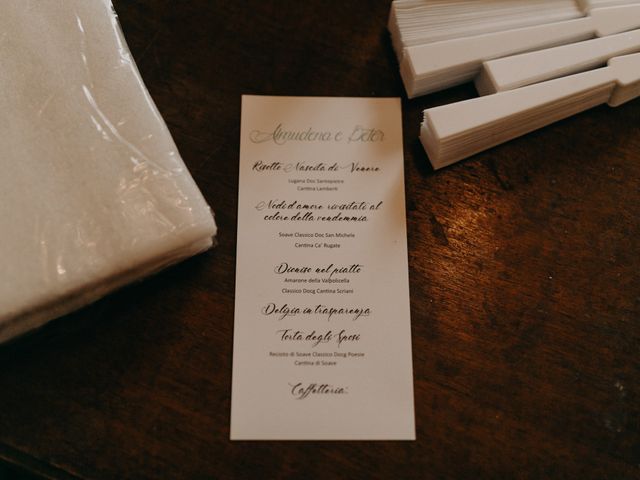 Almudena e Peter
Risotto Nascita di Venere
Lugana Doc Santepietre
Cantina Lamberti
Nodi d'amore rivisitati al
colore della vendemmia
Soave Classico Doc San Michele
Cantina Ca' Rugate
Dioniso nel piatto
Amarone della Valpolicella
Classico Docg Cantina Scriani
Delizia in trasparenza
Torta degli Sposi
Recioto di Soave Classico Docg Poesie
Cantina di Soave
Caffetteria